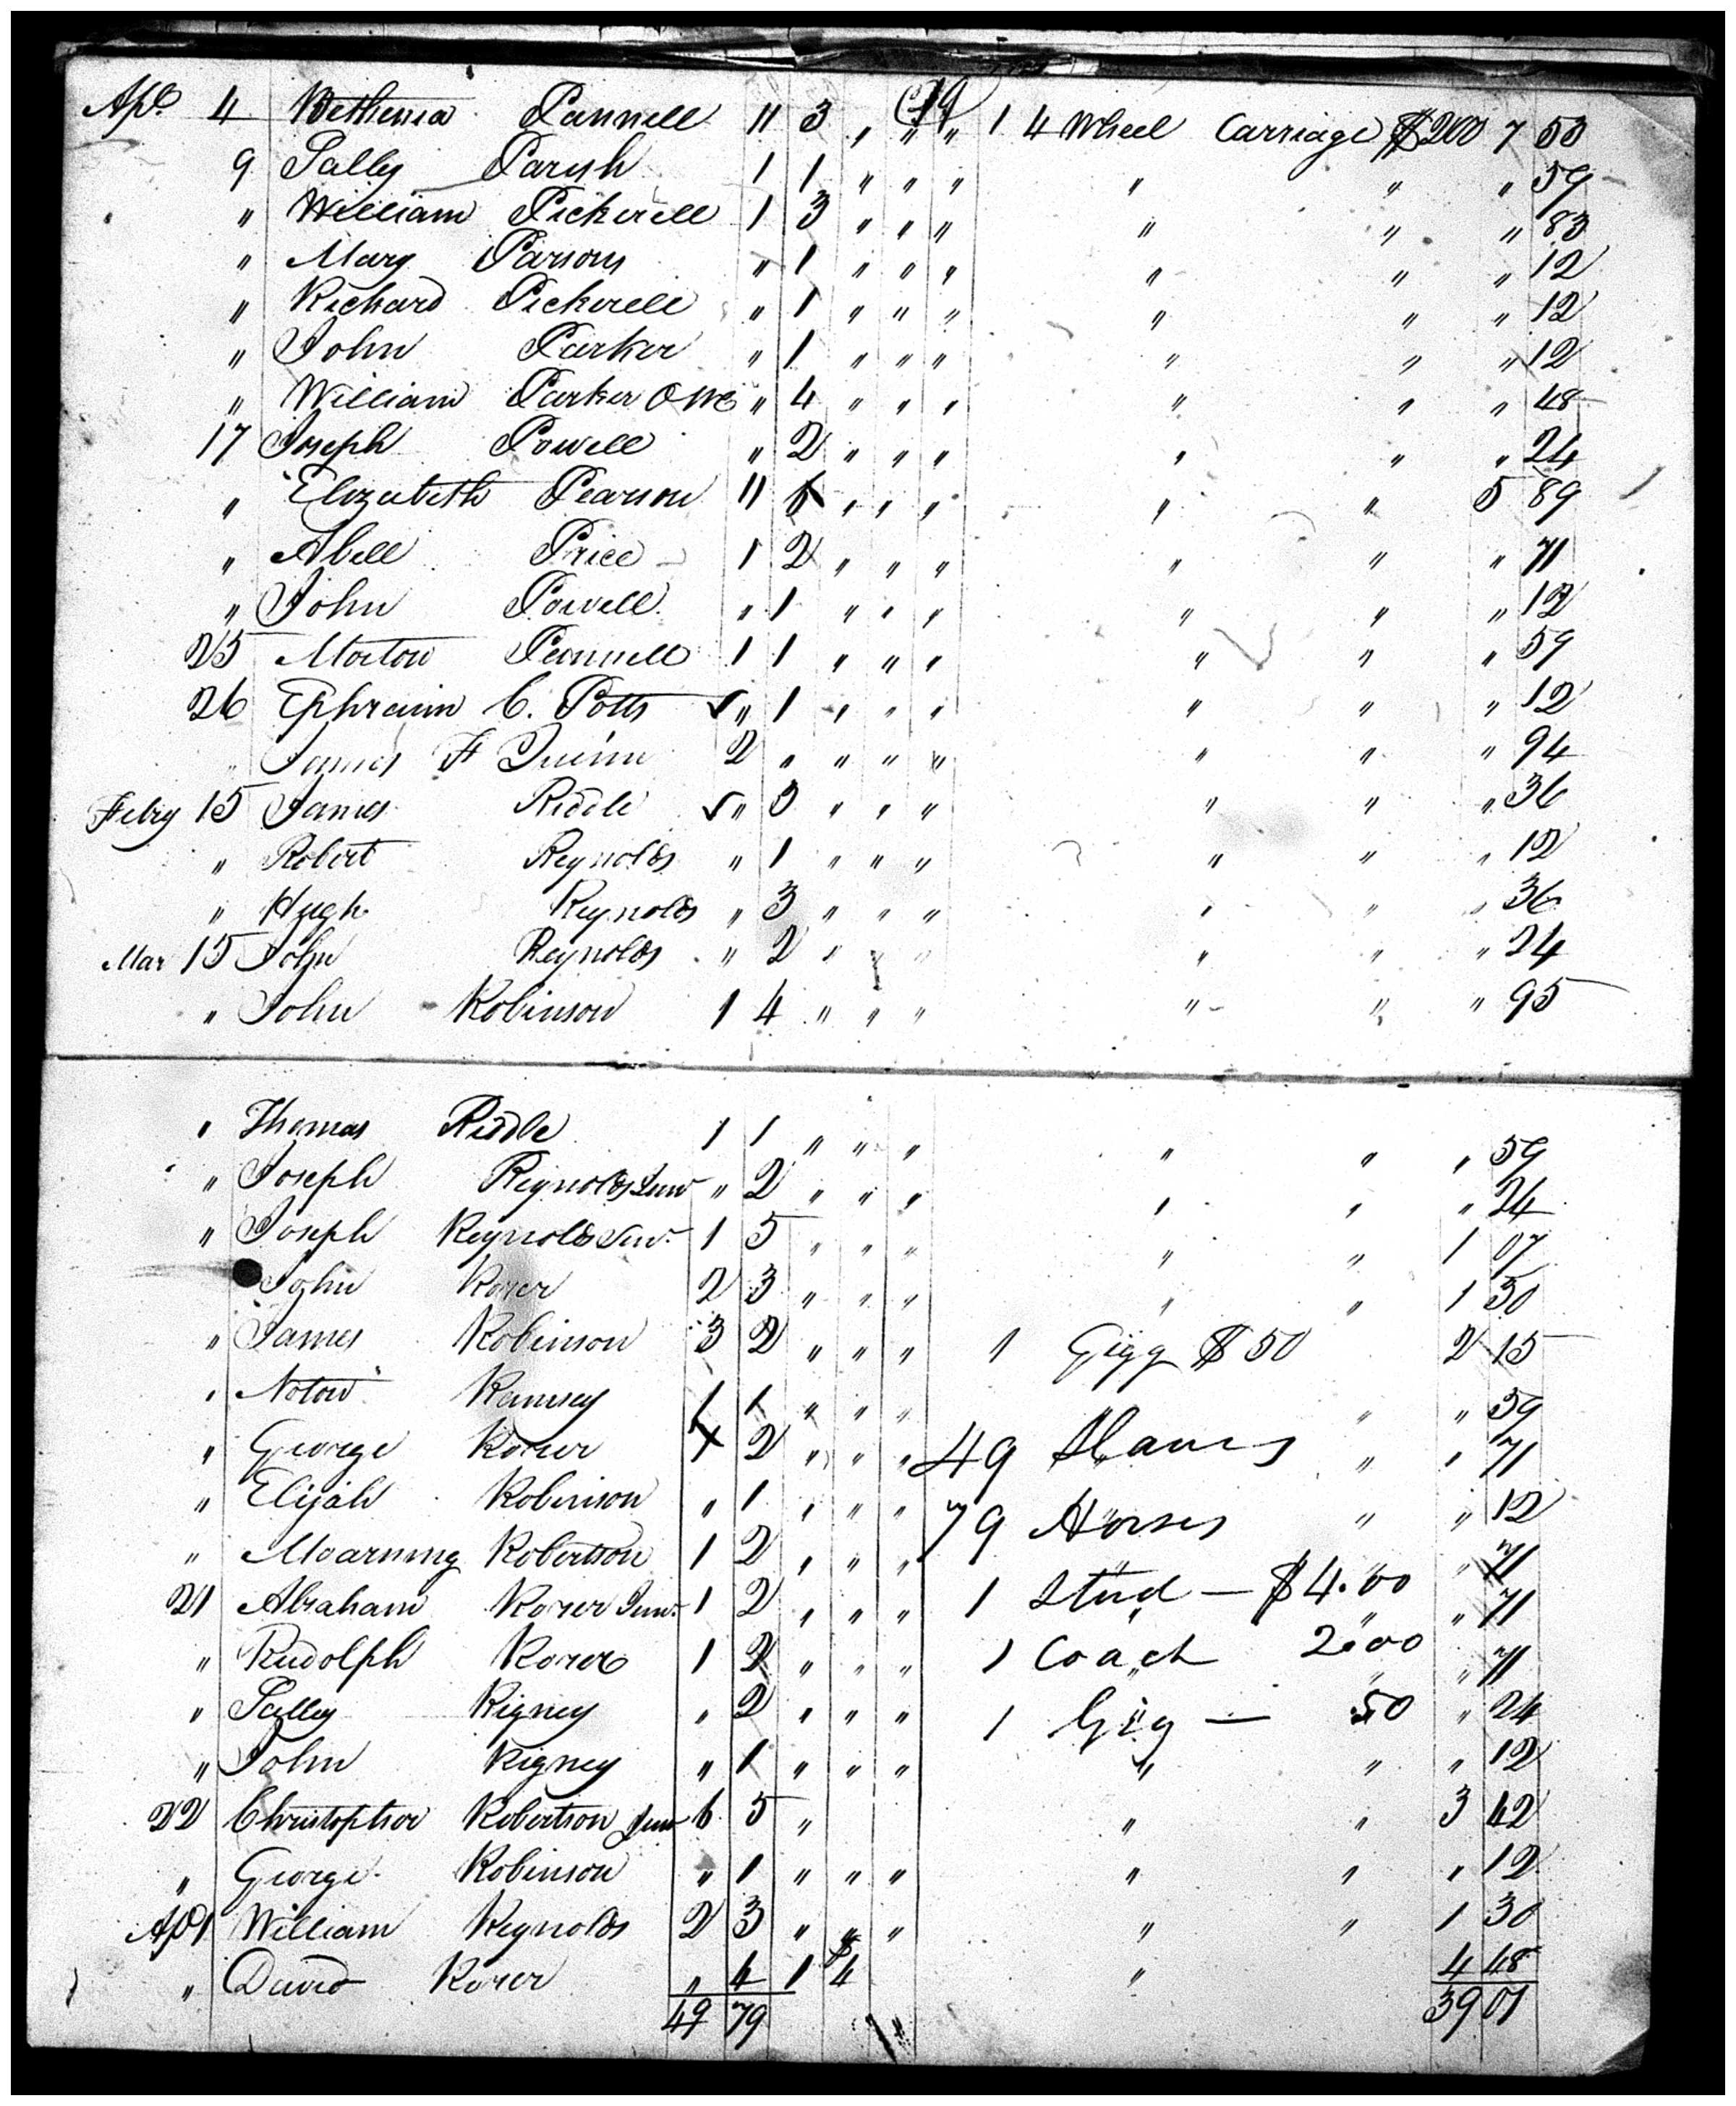 Apl 4 Bethenia Pannell 11 3 " " " 1 4 Wheel Carriage $200 7 53
9 Sally Parish 1 1 " " " " " " 59
" William Pickerell 1 3 " " " " " " 83
" Mary Parsons " 1 " " " " " " 12
" Richard Pickerell " 1 " " " " " " 12
" John Parker " 1 " " " " " " 12
" William Parker " 4 " " " " " " 48
17 Joseph Powell " 2 " " " " " " 24
" Elizabeth Pearson 11 6 " " " " " 5 89
" Abell Price 1 2 " " " " " " 71
" John Powell " 1 " " " " " " 12
25 Morton Pannell 1 1 " " " " " " 59
26 Ephraim C. Potts " 1 " " " " " " 12
" James F Quinn 2 " " " " " " " 94
Febry 15 James Riddle " 3 " " " " " " 36
" Robert Reynolds " 1 " " " " " " 12
" Hugh Reynolds " 3 " " " " " " 36
Mar 15 John Reynolds " 2 " " " " " " 24
" John Robinson 1 4 " " " " " " 95
" Thomas Riddle 1 1 " " " " " " 59
" Joseph Reynolds Junr " 2 " " " " " " 24
" Joseph Reynolds Senr 1 5 " " " " " 1 07
John Rorer 2 3 " " " " " 1 30
" James Robinson 3 2 " " " 1 Gigg $50 2 15
" Notow Ramsey 1 1 " " " " " 59
" George Rorer 1 2 " " " 49 Slaves " " 71
" Elijah Robinson " 1 " " " 79 Horses " " 12
" Moarning Robertson 1 2 " " " " 71
21 Abraham Rorer Junr 1 2 " " " 1 Stud — $4.00 " " 71
" Rudolph Rorer 1 2 " " " 1 Coach 200 " 71
" Salley Rigney " 2 " " " 1 Gig — 50 " 24
" John Rigney " 1 " " " " " " 12
22 Christopher Robertson Junr 6 5 " " " 3 42
" George Robinson " 1 " " " " " " 12
Apl 1 William Reynolds 2 3 " " " " " 1 30
" David Rorer " 4 1 $4 " 4 48
49 79 39 01